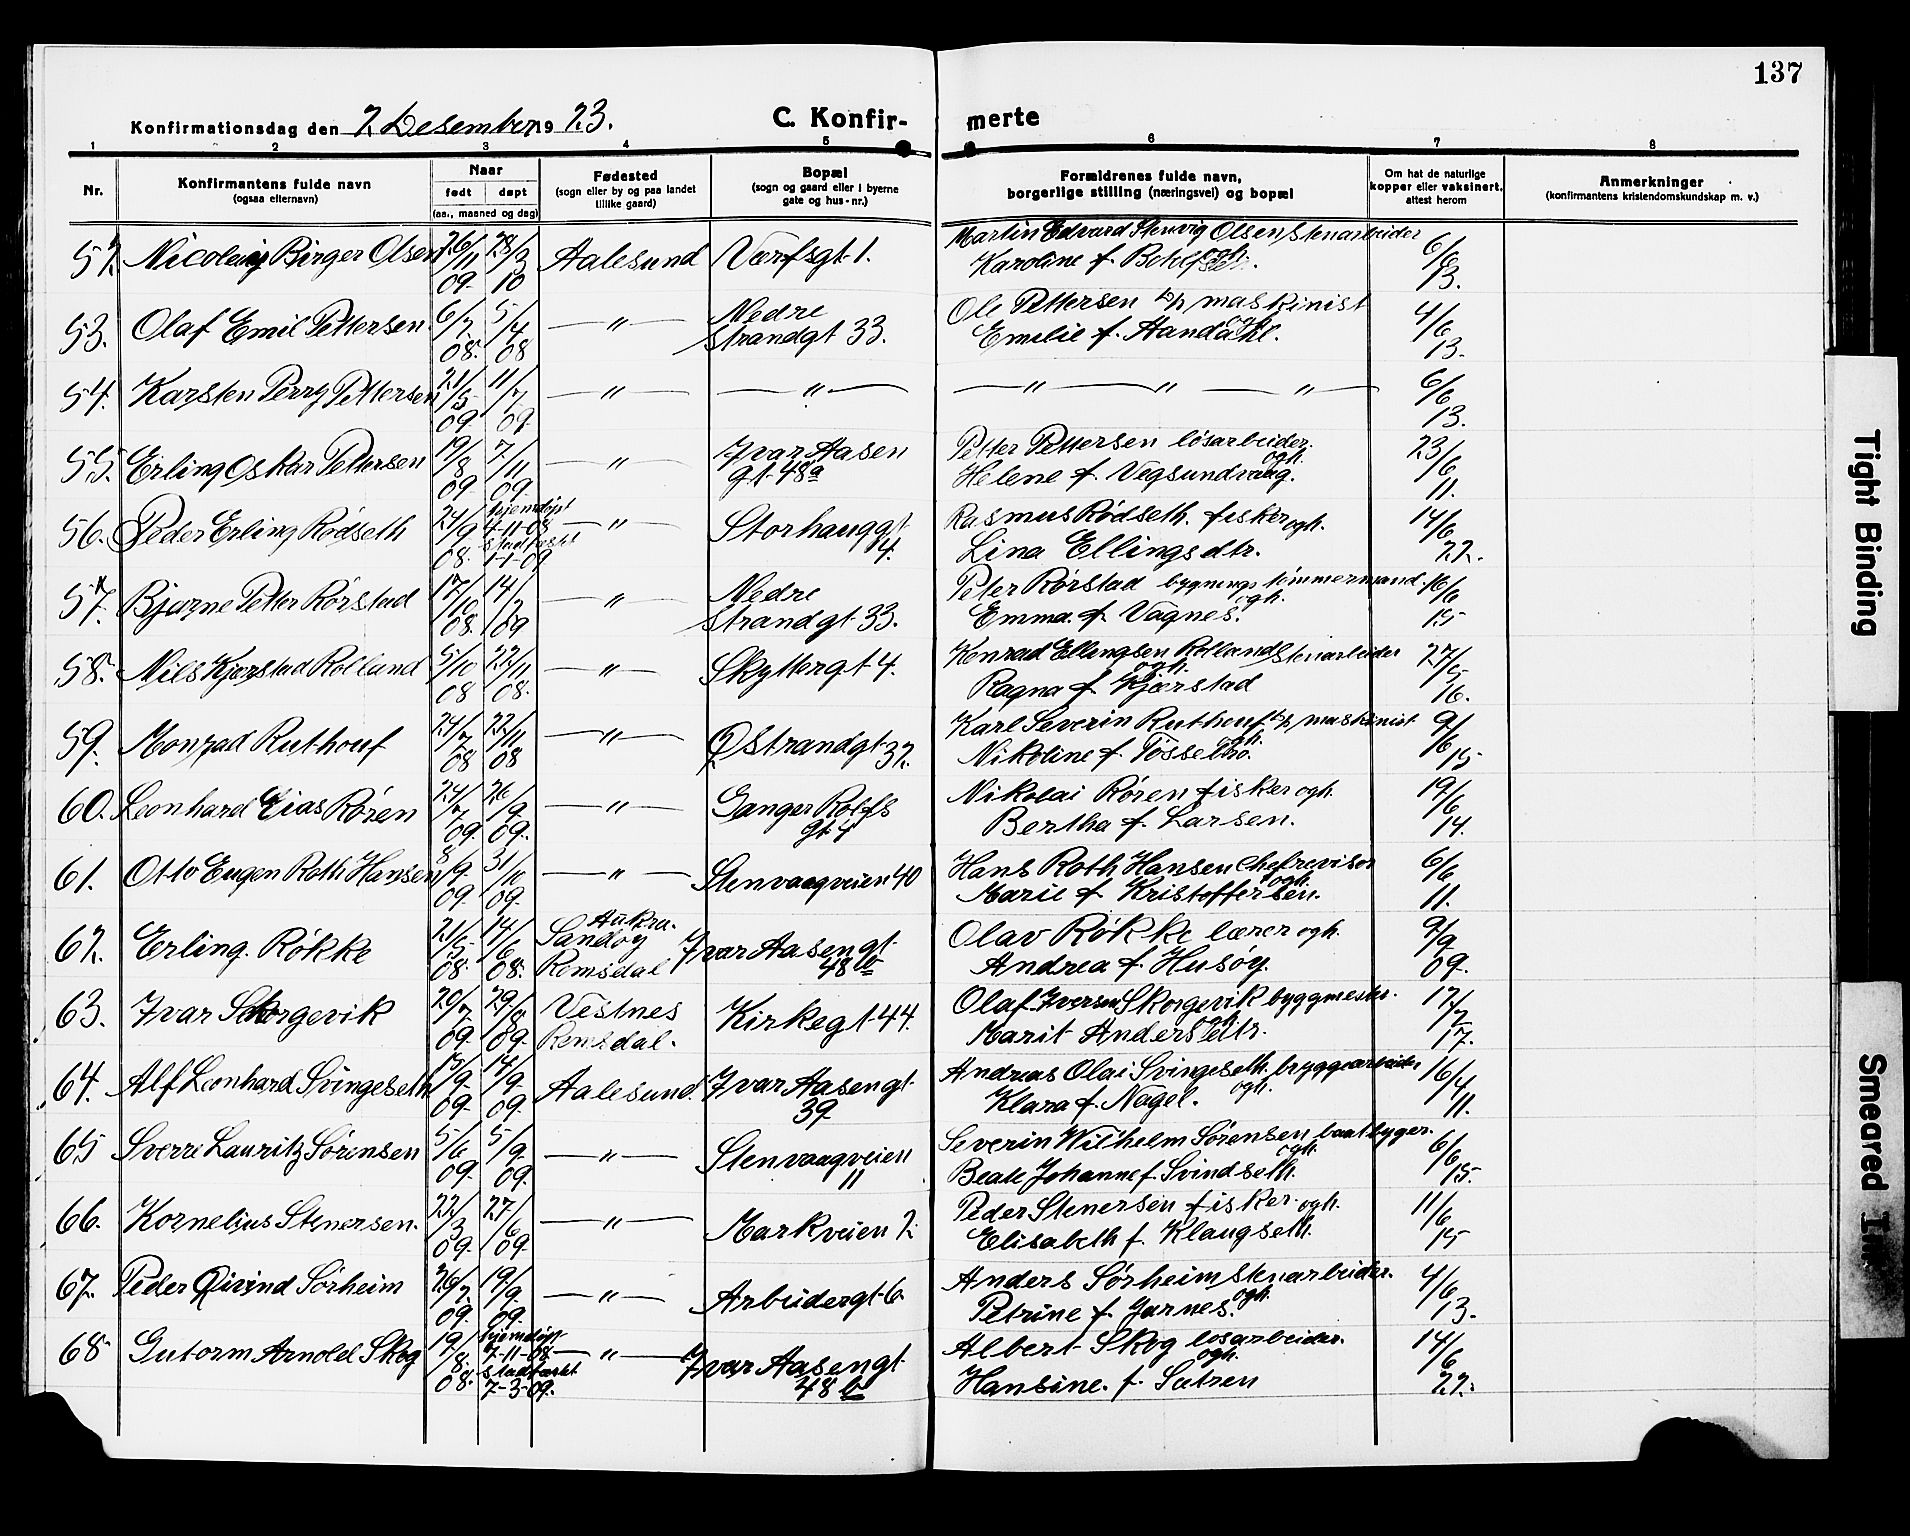 137
Konfirmationsdag den 2 Desember 1923.
C. Konfir- merte
1 2 3 4 5 6 7 8
Nr.
Konfirmantens fulde navn
(ogsaa efternavn)
Naar
født døpt
(aa., maaned og dag)
Fødested
(sogn eller by og paa landet
tillike gaard)
Bopæl
(sogn og gaard eller i byerne
gate og hus-nr.)
Forældrenes fulde navn,
borgerlige stilling (næringsvei) og bopæl
Om hat de naturlige
kopper eller vaksinert.
attest herom
Anmerkninger
(konfirmantens kristendomskundskap m. v.)
52. Birger Olsen 26/11 09. 28/3 10 Aalesund Værfsgt 1. Martin Edvard Stenvig Olsen stenarbeider
Karoline f. 6/6 13.
53. Olaf Emil Pettersen 6/2 08. 5/4 08 — " — Nedre
Strandgt 33. Ole Pettersen maskinist
Emilie f. 4/6 13.
54. Karsten Perry Pettersen 21/5 09. 11/7 09. — " — — " — — " — " — " — 6/6 13.
55. Erling Oskar Pettersen 19/8 09 7/11 09. — " — Ivar Aasen
gt. 48a Petter Pettersen løsarbeider
ogh.
Helene f. Vegsundvaag. 23/6 11.
56. Peder Erling Rødseth 24/9 08. hjemdøpt
4-11-08
stadfæst
1-1-09 — " — Storhauggt
4. Rasmus Rødseth. fisker ogh.
Lina Ellingsdtr. 14/6 22.
57. Bjarne Petter Rørstad 17/10 08. 14/2 09 — " — Nedre
Strandgt 33. Peter Rørstad bygningstømmermand.
ogh.
Emma f. Vagnes. 16/6 15
58. Nils Kjerstad Rolland 5/10 08 22/11 08. — " — Skyttergt 4. Konrad Ellingsen Rolland Stenarbeider
ogh.
Ragna f. Kjærstad 27/5 16.
59. Monrad Ruthouf 24/7 08 22/11 08 — " — Ø Strandgt 32. Karl Severin Ruthouf maskinist
ogh.
Nikoline f. Tøssebro. 9/6 15
60. Leonhard Elias Røren 24/7 09. 26/9 09. — " — Ganger Rolfs
gt. 4 Nikolai Røren fisker ogh.
Bertha f. Larsen. 19/6 14.
61. Otto Eugen Roth Hansen 8/9 09. 31/10 09. — " — Stenvaagveien 40 Hans Roth Hansen chefrevisor
ogh.
Marie f. Kristoffersen. 6/6 11.
62. Erling. Røkke 21/5 08. 14/6 08. Aukra.
Sandøy
Romsdal Ivar Aasengt.
48 b Olav Røkke lærer ogh.
Andrea f. Husøy. 9/9 09.
63. Ivar Skorgevik 20/7 09. 29/8 09. Vestnes
Romsdal. Kirkegt 44. Olaf Iversen Skorgevik byggmester.
ogh.
Marit Andersdtr. 17/2 17.
64. Alf Leonhard Svingeseth 09. 14/9 09. Aalesund. Ivar Aasengt.
39 Andreas Olai Svingeseth. bryggearbeider
ogh.
Klara f. Nagel. 16/4 11.
65 Sverre Lauritz Sørensen 5/6 09. 5/9 09. — " — Stenvaagveien
11 Severin Wilhelm Sørensen baatbygger.
ogh.
Beate Johanne f. Svindseth. 6/6 15.
66. Kornelius Stenersen. 22/3 09. 27/6 09. — " — Markveien 2 Peder Stenersen fisker ogh.
Elisabeth f. Klaugseth. 11/6 15
67. Peder Øivind Sørheim 26/7 09. 19/9 09. — " — Arbeidergt 6. Anders Sørheim stenarbeider.
ogh.
Petrine f. Garnes. 4/6 13.
68 Gutorm Arnold Skog 19/8 08. hjemdøpt
7-11-08
stadfæst
7-3-09. — " — Ivar Aasengt
48 b Albert Skog løsarbeider.
ogh.
Hansine. f. Sætren 14/6 22.
Tight Binding
Smeared Ink